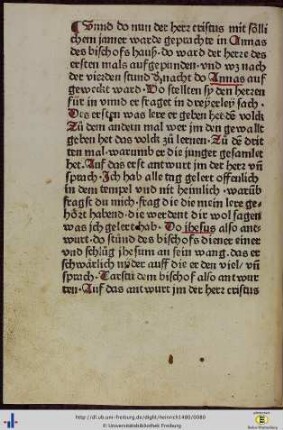 ¶ Vnnd do nun der herr cristus mit sölli
chem jamer warde gepracht in Annas
des bischofs hauß· do ward der herre des
ersten mals aufgepunden· vnd wz nach
der vierden stund dz nacht do Annas auf
geweckt ward· Do stellten sy den herren
für in vnnd er fraget in dreyerley sach·
Des ersten was lere er geben het dē volck
Zů dem andern mal wer jm den gewalt
geben het das volck zů lernen· Zů dē drit
ten mal· warumb er die junger gesamlet
het· Auf das erst antwurt jm der herr vñ
sprach· Ich hab alle tag gelert offenlich
in dem tempel vnd nit heimlich· warūb
fragst du mich· frag die die mein lere ge-
hört habend· die werdent dir wol sagen
was ich gelert hab· Do jhesus also ant
wurt· do stůnd des bischofs diener einer
vnd schlůg jhesum an sein wang· das er
schwärlich nyder auff die erden viel/ vñ
sprach· Tarstu dem bischof also antwur
ten· Auf das antwurt jm der herr cristus
http://dl.ub.uni-freiburg.de/diglit/heinrich1480/0080
© Universitätsbibliothek Freiburg